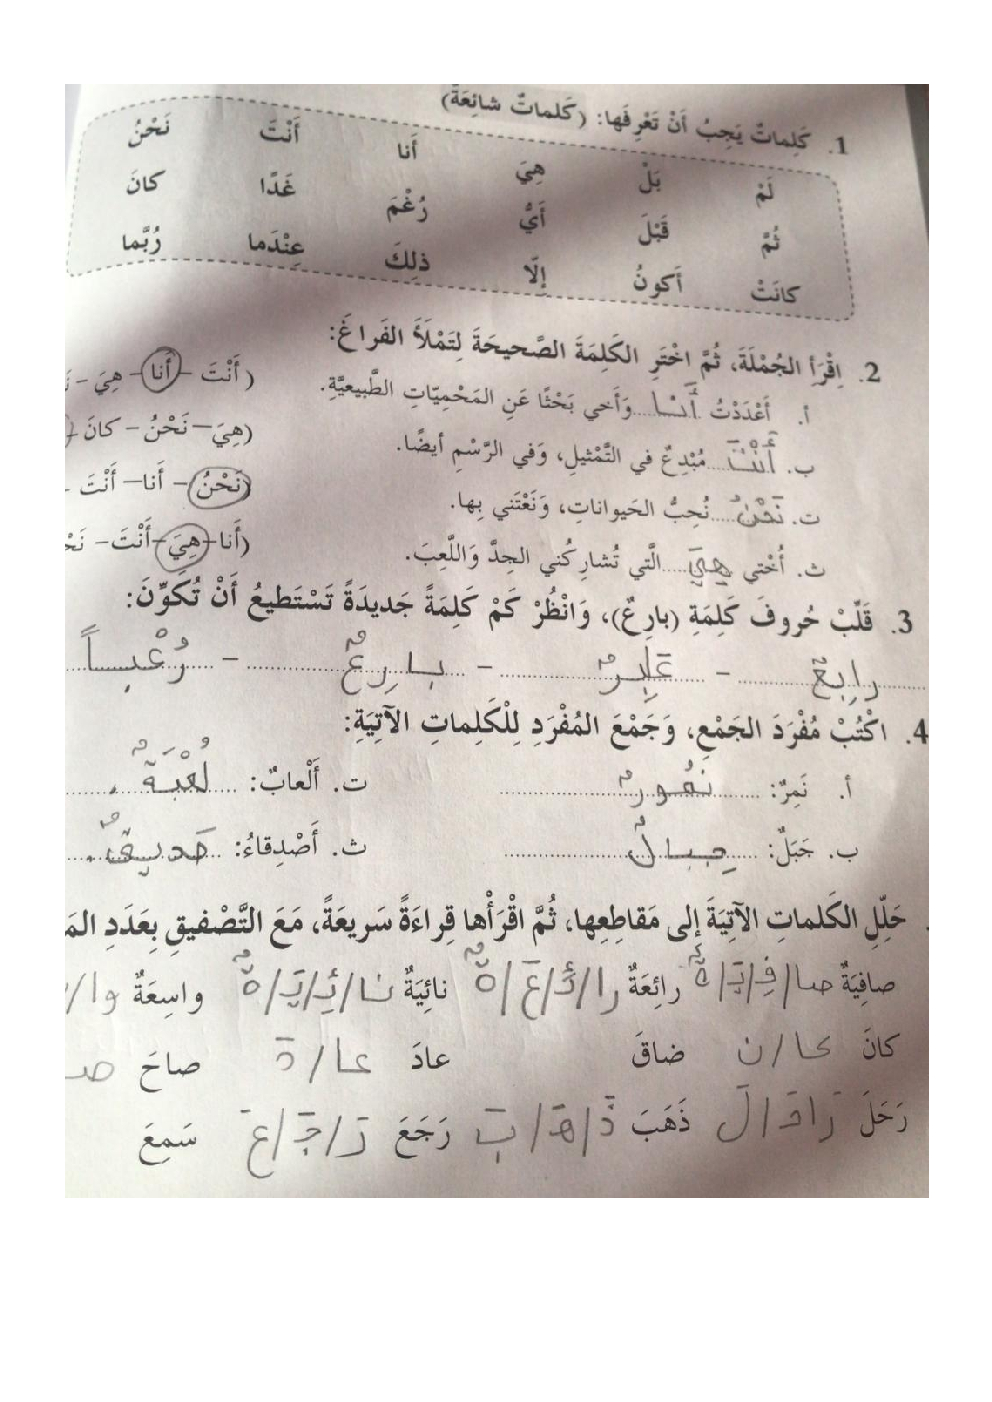 1. كَلِماتٌ يَجِبُ أَنْ تَعْرِفَها: (كَلماتٌ شائِعَةٌ)
لَمْ بَلْ هِيَ أَنا أَنْتَ نَحْنُ
ثُمَّ قَبْلَ أَيُّ رُغْمَ غَدًا كانَ
كانَتْ أَكونُ إِلّا ذلِكَ عِنْدَما رُبَّما
2. اِقْرَأِ الجُمْلَةَ، ثُمَّ اخْتَرِ الكَلِمَةَ الصَّحيحَةَ لِتَمْلَأَ الفَراغَ:
أ. أَعْدَدْتُ أَنا وَأَخي بَحْثًا عَنِ المَحْمِيّاتِ الطَّبيعيَّةِ. (أَنْتَ - أَنا - هِيَ -
ب. أَنْتَ مُبْدِعٌ في التَّمْثيلِ، وَفي الرَّسْمِ أيضًا. (هِيَ – نَحْنُ - كانَ
ت. نَحْنُ نُحِبُّ الحَيواناتِ، وَنَعْتَني بِها. (نَحْنُ - أَنا – أَنْتَ -
ث. أُخْتي هِيَ الَّتي تُشارِكُني الجِدَّ وَاللَّعِبَ. (أَنا - هِيَ - أَنْتَ -
3. قَلِّبْ حُروفَ كَلِمَةِ (بارِعٌ)، وَانْظُرْ كَمْ كَلِمَةً جَديدَةً تَسْتَطيعُ أَنْ تُكَوِّنَ:
رابِعٌ - عابِرٌ - بارِعٌ - رُعْباً
4. اكْتُبْ مُفْرَدَ الجَمْعِ، وَجَمْعَ المُفْرَدِ لِلْكَلِماتِ الآتِيَةِ:
أ. نَمِرٌ: نمُورٌ ت. أَلْعابٌ: لُعْبَةٌ
ب. جَبَلٌ: جِبالٌ ث. أَصْدِقاءُ:
حَلِّلِ الكَلماتِ الآتِيَةَ إلى مَقاطِعِها، ثُمَّ اقْرَأْها قِراءَةً سَريعَةً، مَعَ التَّصْفيقِ بِعَدَدِ
صافِيَةٌ صا/فِ/يَـ/ةٌ رائِعَةٌ را/ئِـ/عَـ/ةٌ نائِيَةٌ نا/ئِـ/يَـ/ةٌ واسِعَةٌ وا/
كانَ كا/ن ضاقَ عادَ عا/ صاحَ
رَحَلَ ذَهَبَ ذَ/هَـ/بَ رَجَعَ رَ/جَـ/عَ سَمِعَ